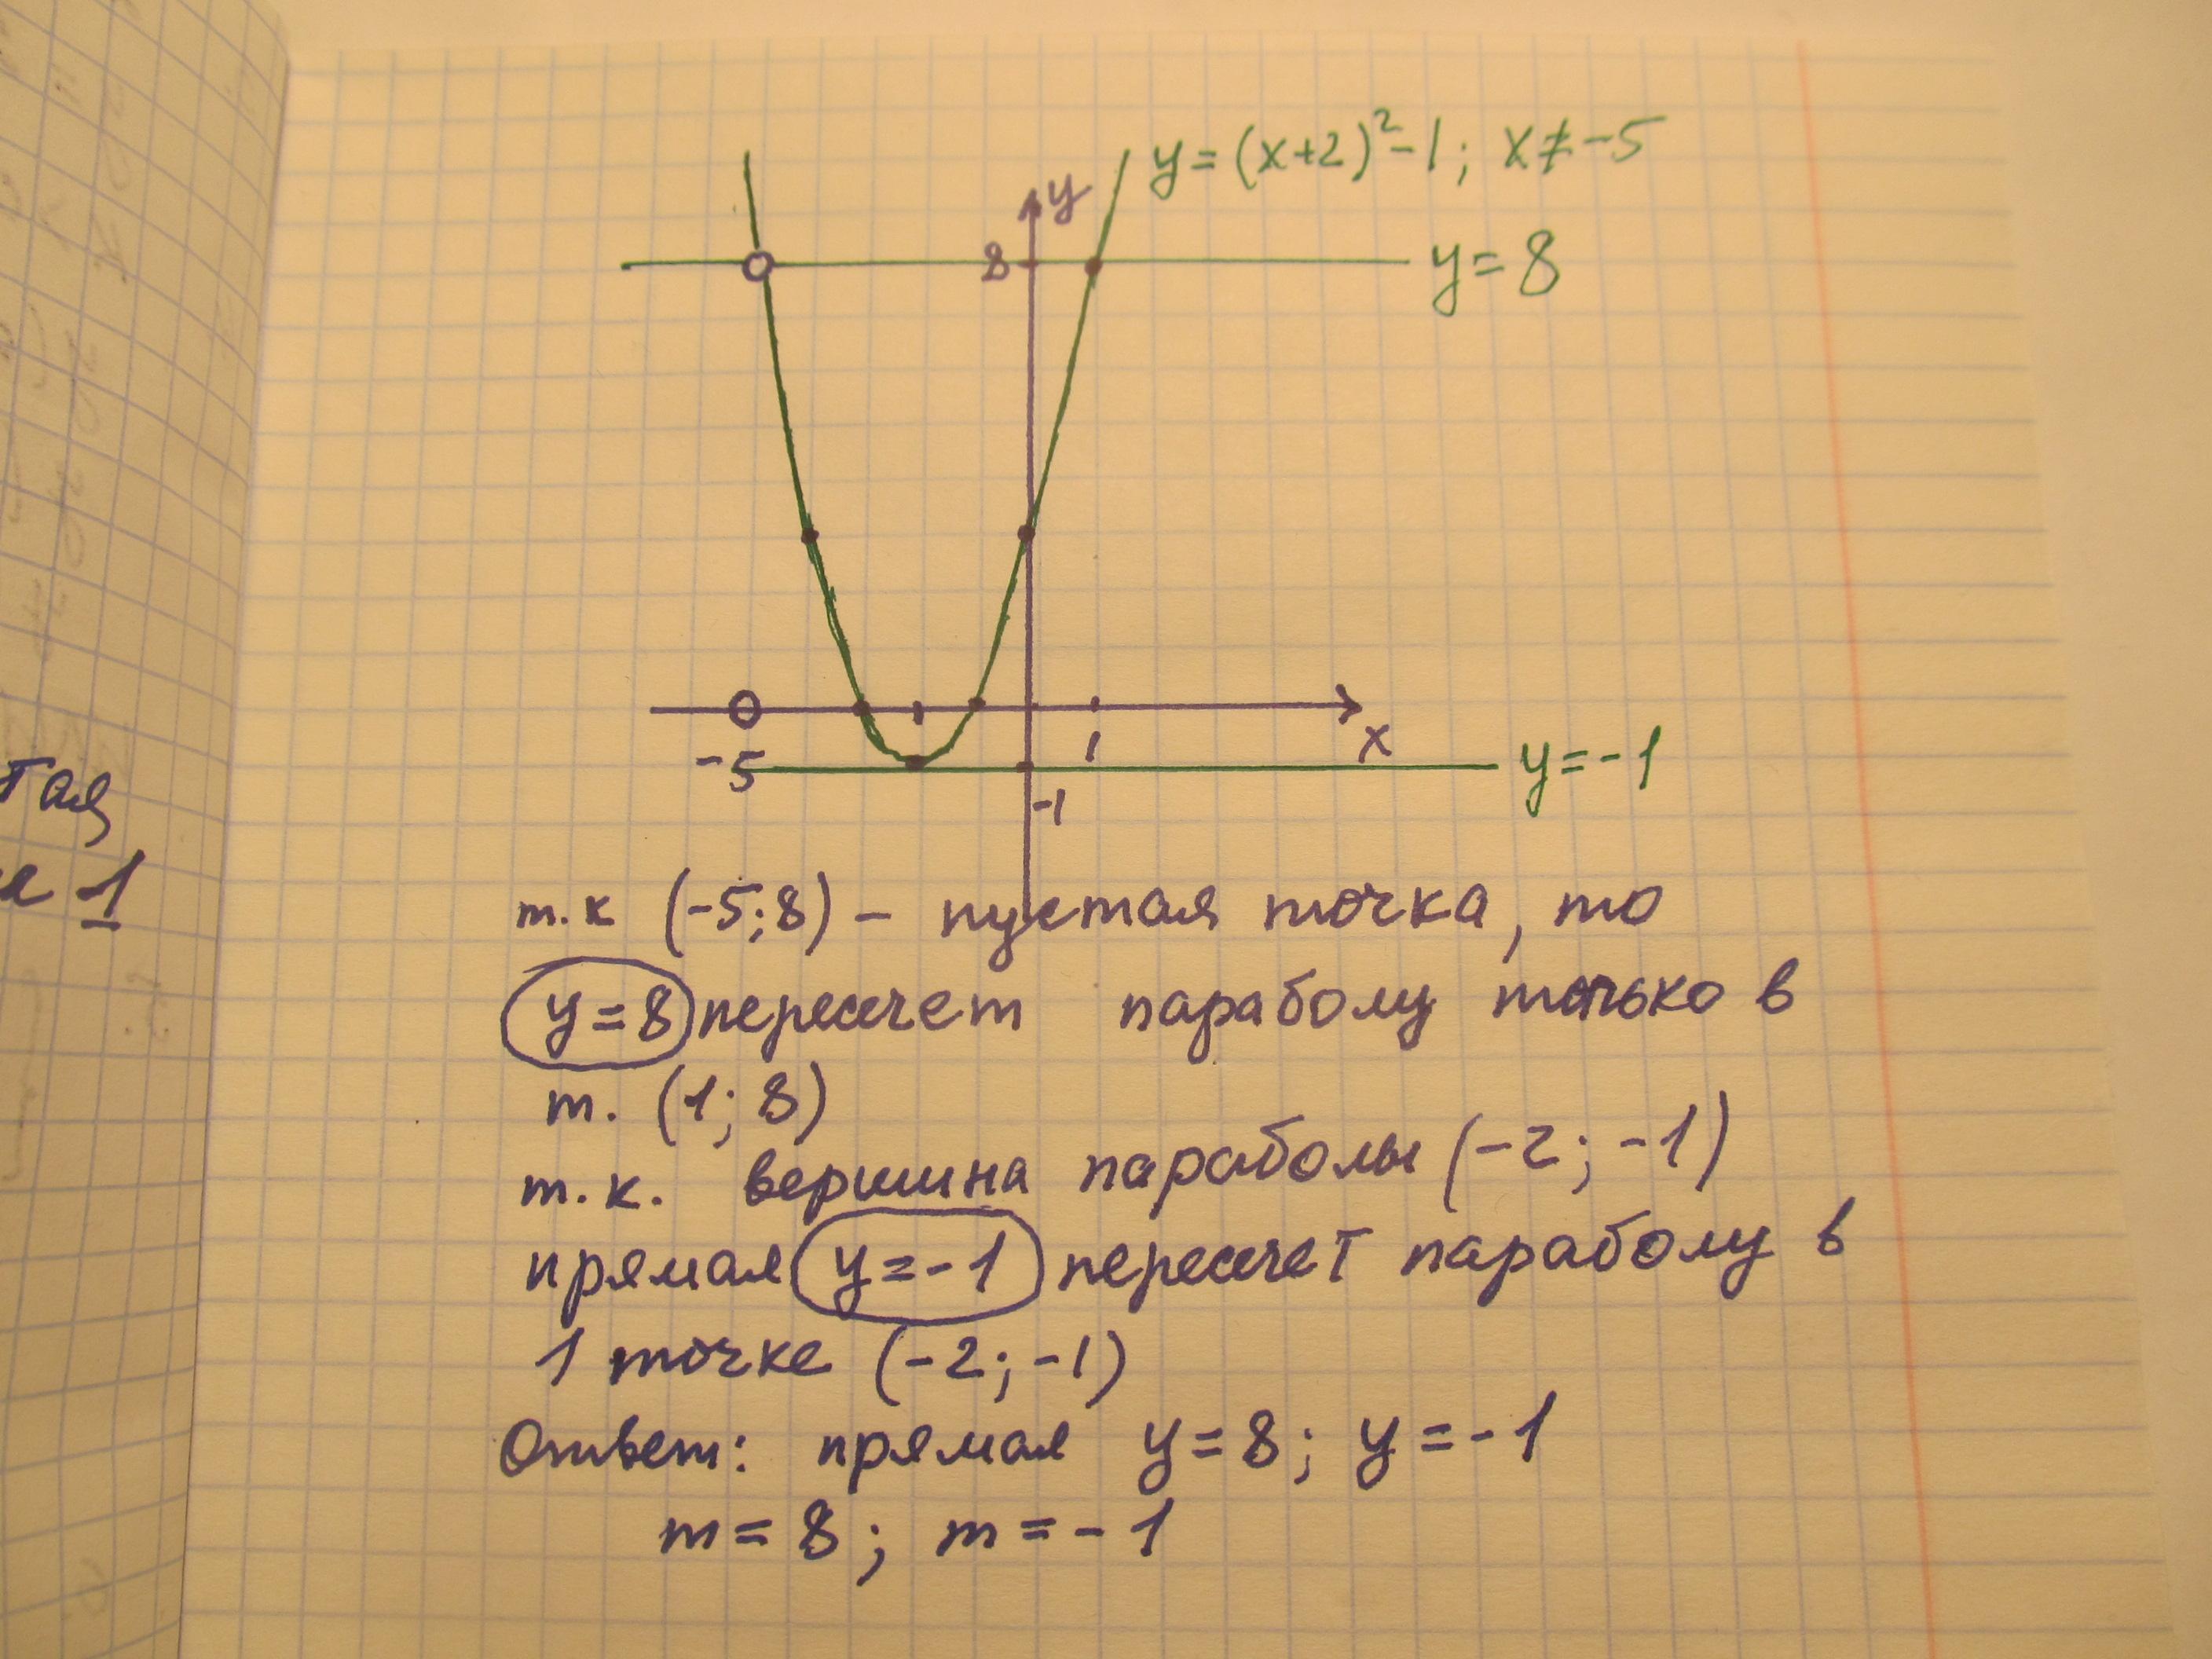 y=(x+2)²-1; x≠-5
y
8
y=8
x
-5
1
y=-1
-1
тая
1
т.к (-5;8) – пустая точка, то
y=8 пересечет параболу только в
т. (1; 8)
т.к. вершина параболы (-2; -1)
прямая y=-1 пересечет параболу в
1 точке (-2; -1)
Ответ: прямая y=8; y=-1
m=8; m=-1